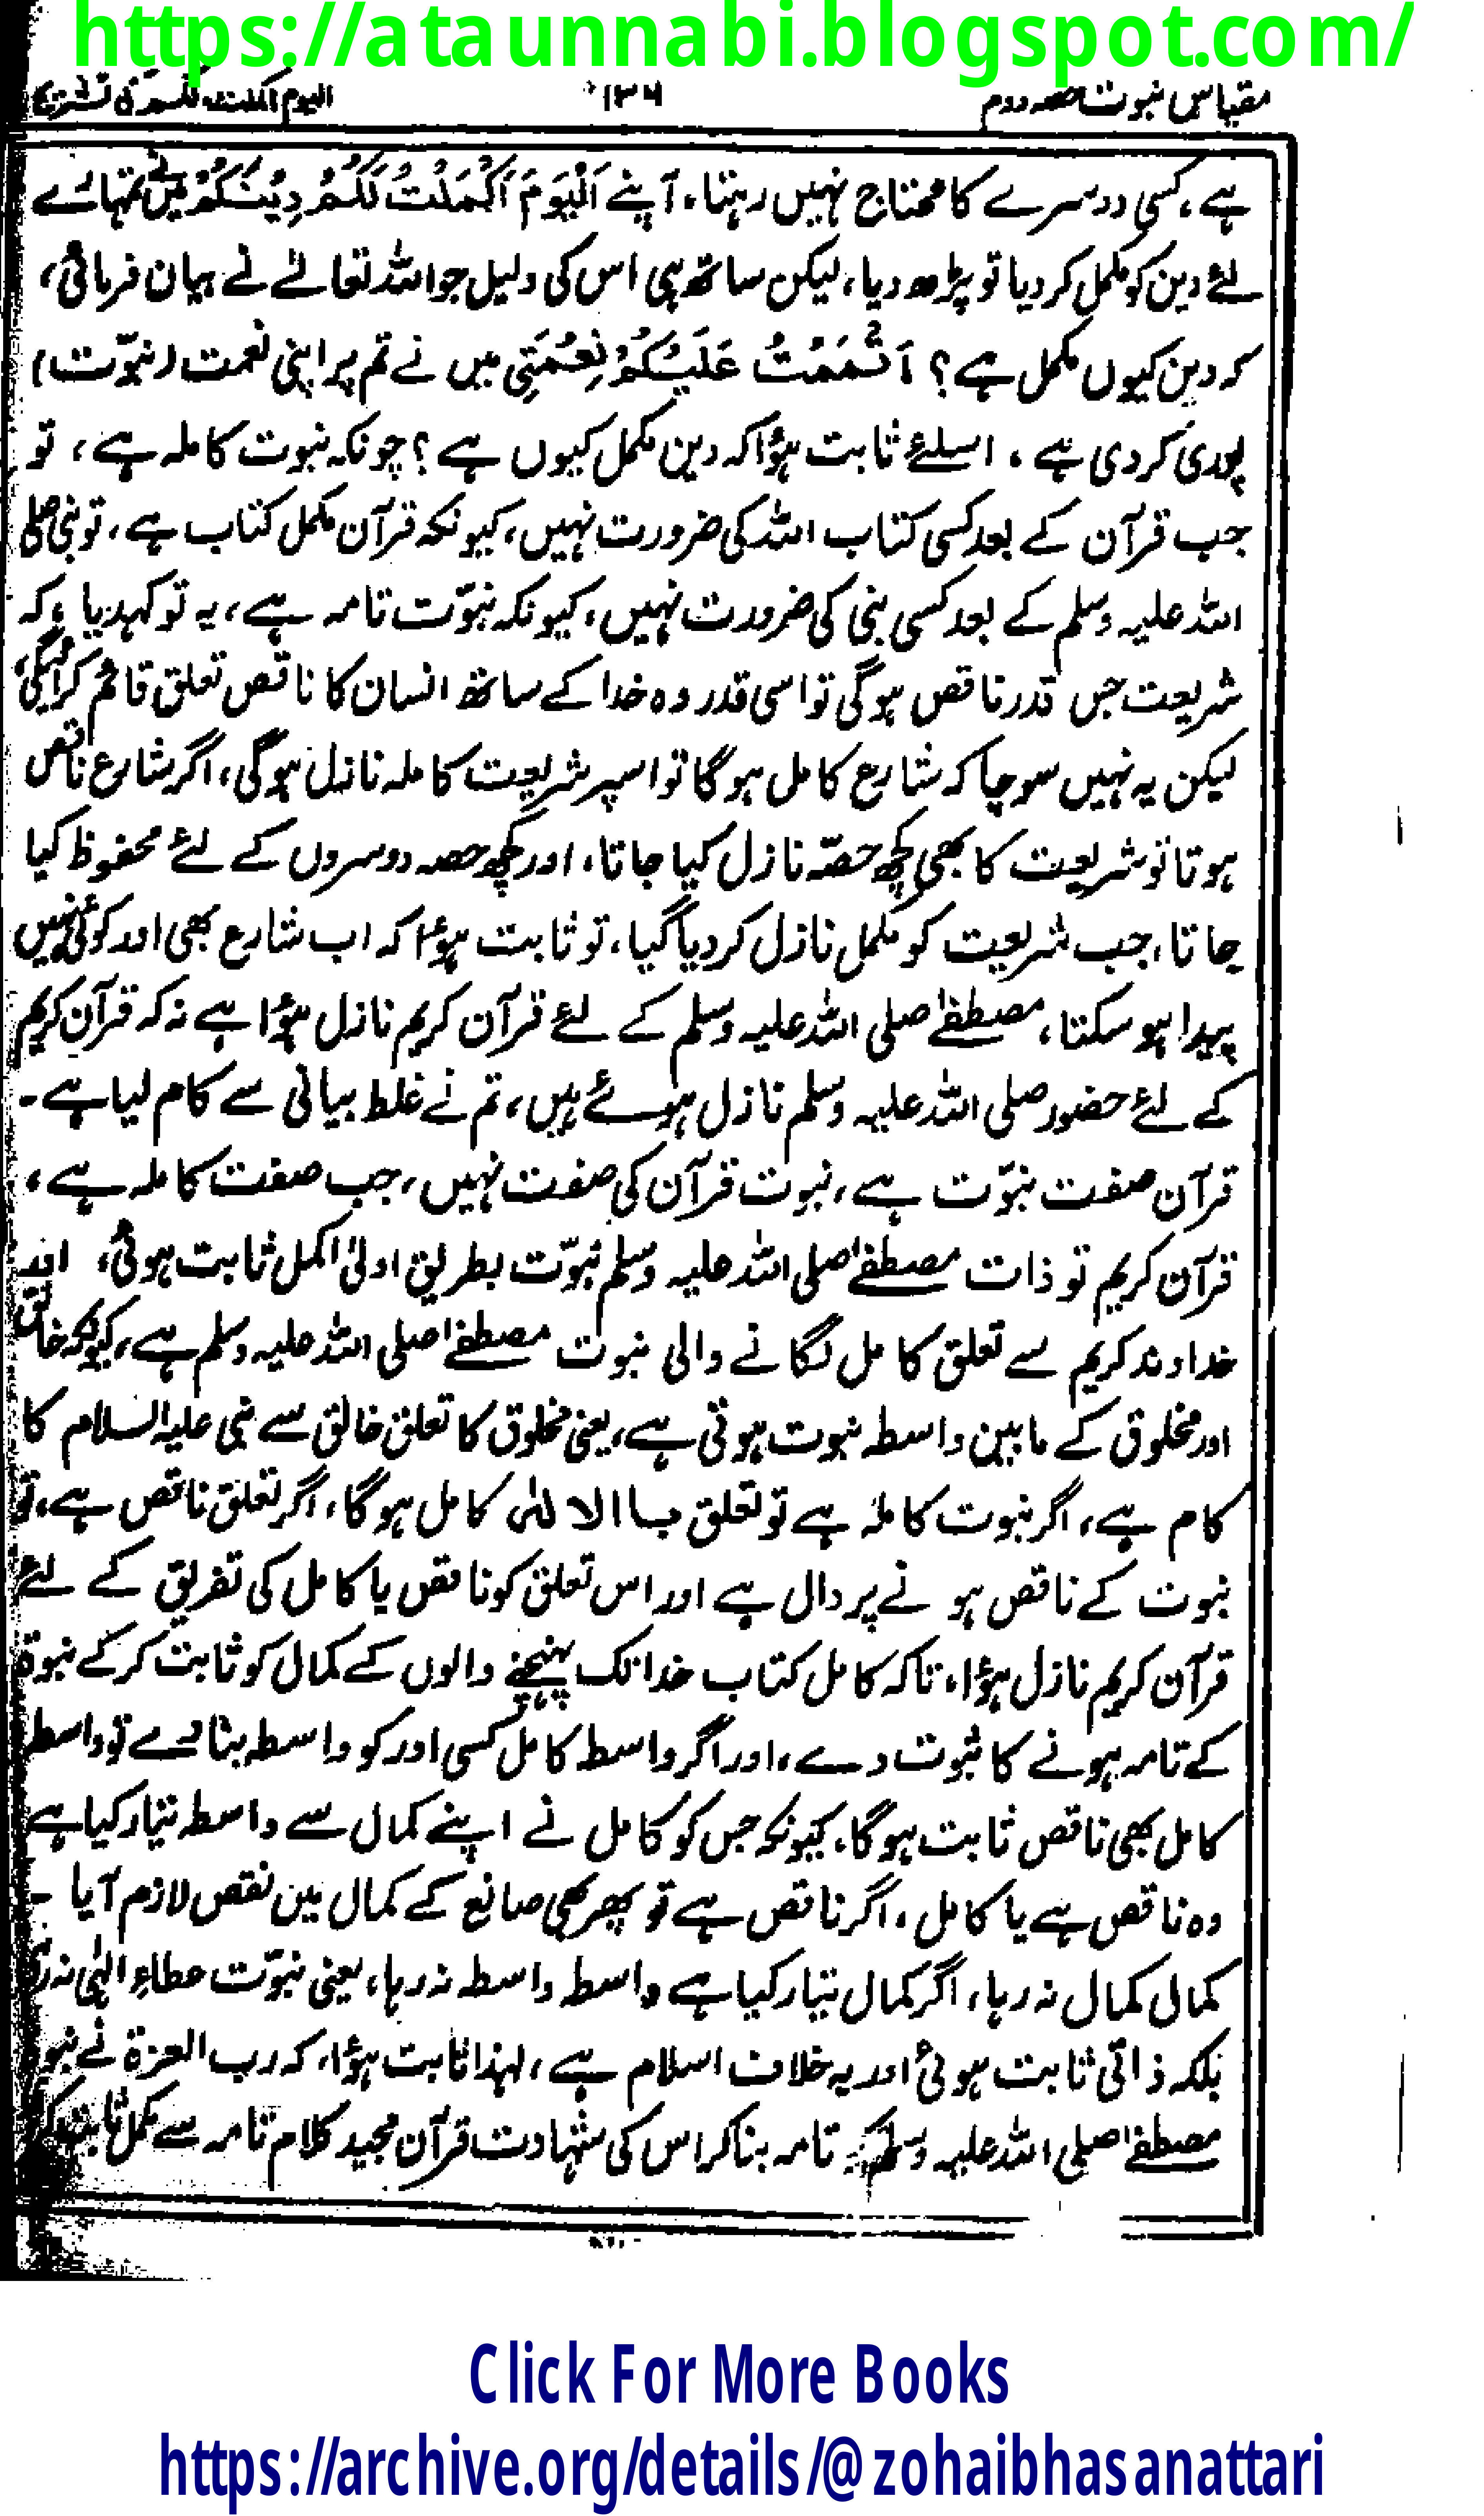 https://ataunnabi.blogspot.com/
مقیاس نبوت حصہ دوم ۱۳۶ الیوم اکملت لکم کی تشریح
ہے، کسی دوسرے کا محتاج نہیں رہتا، آپنے اَلْیَوْمَ اَکْمَلْتُ لَکُمْ دِیْنَکُمْ میں نے تمہارے
لئے دین کو مکمل کر دیا تو پڑھ دیا، لیکن ساتھ ہی اس کی دلیل جو اللہ تعالےٰ نے بیان فرمائی،
کہ دین کیوں مکمل ہے؟ اَتْمَمْتُ عَلَیْکُمْ نِعْمَتِی میں نے تم پر اپنی نعمت (نبوّت)
پوری کر دی ہے، اسلئے ثابت ہؤا کہ دین مکمل کیوں ہے؟ چونکہ نبوت کاملہ ہے، تو
جب قرآن کے بعد کسی کتاب اللہ کی ضرورت نہیں، کیونکہ قرآن مکمل کتاب ہے، تو نبی صلی
اللہ علیہ وسلم کے بعد کسی نبی کی ضرورت نہیں، کیونکہ نبوّت تامہ ہے، یہ تو کہدیا، کہ
شریعت جس قدر ناقص ہوگی تو اسی قدر وہ خدا کے ساتھ انسان کا ناقص تعلق قائم کرائیگی،
لیکن یہ نہیں سوچا کہ شارع کامل ہوگا تو اسپر شریعت کاملہ نازل ہوگی، اگر شارع ناقص
ہوتا تو شریعت کا بھی کچھ حصّہ نازل کیا جاتا، اور کچھ حصہ دوسروں کے لئے محفوظ کیا
جاتا، جب شریعت کو مکمل نازل کر دیا گیا، تو ثابت ہؤا کہ اب شارع بھی اور کوئی نہیں
پیدا ہو سکتا، مصطفےٰ صلی اللہ علیہ وسلم کے لئے قرآن کریم نازل ہؤا ہے نہ کہ قرآن کریم
کے لئے حضور صلی اللہ علیہ وسلم نازل ہوئے ہیں، تم نے غلط بیانی سے کام لیا ہے۔
قرآن صفت نبوّت ہے، نبوت قرآن کی صفت نہیں، جب صفت کاملہ ہے،
قرآن کریم تو ذات مصطفےٰ صلی اللہ علیہ وسلم نبوّت بطریق اولیٰ اکمل ثابت ہوئی، اور
خداوند کریم سے تعلق کامل لگانے والی نبوت مصطفےٰ صلی اللہ علیہ وسلم ہے، کیونکہ خالق
اور مخلوق کے مابین واسطہ نبوت ہوتی ہے، یعنی مخلوق کا تعلق خالق سے نبی علیہ السلام کا
کام ہے، اگر نبوت کاملہ ہے تو تعلق باالالہٰی کامل ہوگا، اگر تعلق ناقص ہے، تو
نبوت کے ناقص ہونے پر دال ہے اور اس تعلق کو ناقص یا کامل کی تفریق کے لئے
قرآن کریم نازل ہؤا، تاکہ کامل کتاب خدا تک پہنچنے والوں کے کمال کو ثابت کر کے نبوۃ
کے تامہ ہونے کا ثبوت دے، اور اگر واسطہ کامل کسی اور کو واسطہ بنا دے تو واسطہ
کامل بھی ناقص ثابت ہوگا، کیونکہ جس کو کامل نے اپنے کمال سے واسطہ تیار کیا ہے
وہ ناقص ہے یا کامل، اگر ناقص ہے تو پھر بھی صانع کے کمال میں نقص لازم آیا۔
کمال کمال نہ رہا، اگر کمال تیار کیا ہے واسطہ واسطہ نہ رہا، یعنی نبوّت عطاءِ الٰہی نہ رہی
بلکہ ذاتی ثابت ہوئی اور یہ خلاف اسلام ہے، لہذا ثابت ہؤا، کہ رب العزۃ نے نبوۃ
مصطفےٰ صلی اللہ علیہ وسلم تامہ بنا کر اس کی شہادت قرآن مجید کلام تامہ سے مکمل
Click For More Books
https://archive.org/details/@zohaibhasanattari